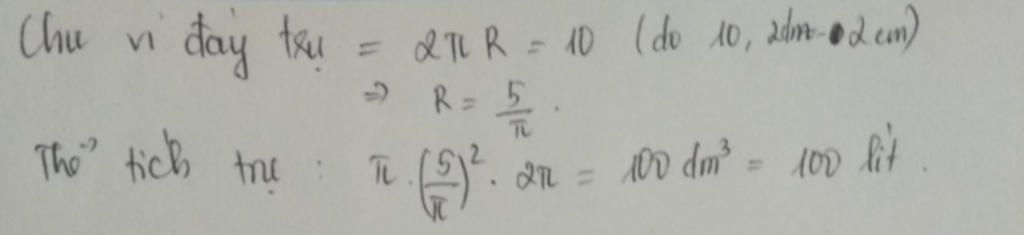 Chu vi đáy trụ = 2π R = 10 (do 10,2dm - 2cm)
⇒ R = 5/π .
Thể tích trụ : π . (5/π)² . 2π = 100 dm³ = 100 lít .